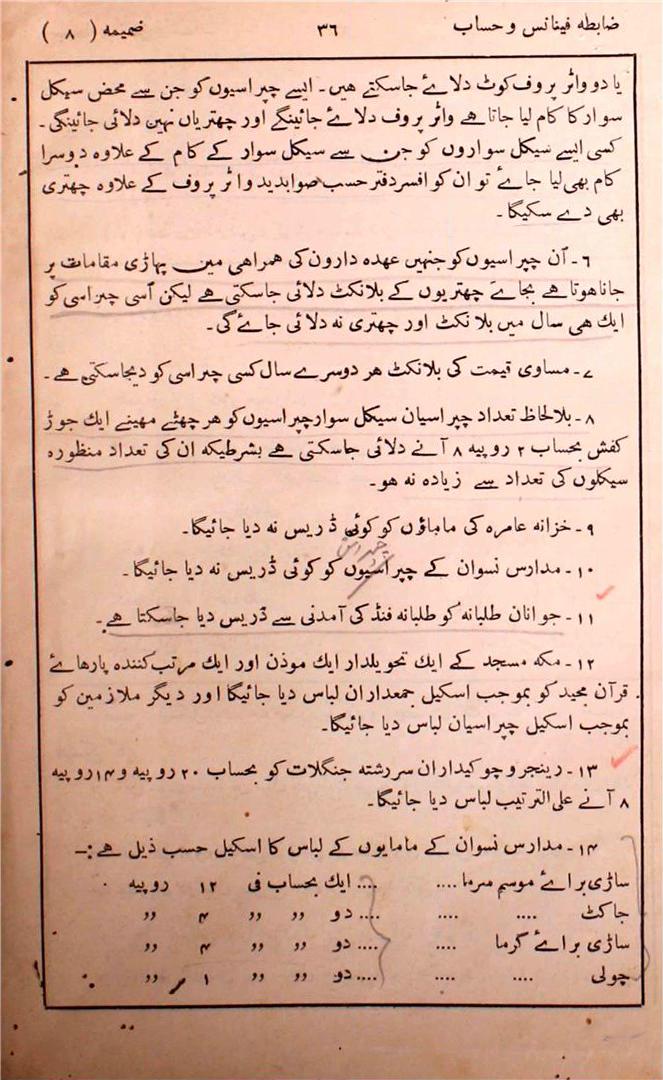 ضابطه فینانس و حساب ۳۶ ضمیمه ( ۸ )
یا دو واٹر پروف کوٹ دلائے جاسکتے هیں۔ ایسے چپراسیوں کو جن سے محض سیکل
سوار کا کام لیا جاتا هے واٹر پروف دلائے جائینگے اور چھتریاں نہین دلائی جائینگی۔
کسی ایسے سیکل سواروں کو جن سے سیکل سوار کے کام کے علاوه دوسرا
کام بھی لیا جائے تو ان کو افسر دفتر حسب صوابدید واٹر پروف کے علاوه چھتری
بھی دے سکیگا۔
۶۔ اُن چپراسیوں کو جنہیں عهده دارون کی همراهی مین پہاڑی مقامات پر
جانا هوتا هے بجائے چھتریوں کے بلانکٹ دلائی جاسکتی هے لیکن اُسی چپراسی کو
ایك هی سال میں بلانکٹ اور چھتری نه دلائی جائے گی۔
۷۔ مساوی قیمت کی بلانکٹ هر دوسرے سال کسی چپراسی کو دیجاسکتی هے۔
۸۔ بلالحاظ تعداد چپراسیان سیکل سوار چپراسیوں کو هر چھٹے مهینے ایك جوڑ
کفش بحساب ۲ روپیه ۸ آنے دلائی جاسکتی هے بشرطیکه ان کی تعداد منظوره
سیکلوں کی تعداد سے زیاده نه هو۔
۹۔ خزانه عامره کی ماماؤں کو کوئی ڈریس نه دیا جائیگا۔
۱۰۔ مدارس نسوان کے چپراسیوں کو کوئی ڈریس نه دیا جائیگا۔
۱۱۔ جوانان طلبانه کو طلبانه فنڈ کی آمدنی سے ڈریس دیا جاسکتا هے۔
۱۲۔ مکه مسجد کے ایك تحویلدار ایك موذن اور ایك مرتب کننده پارهائے
قرآن مجید کو بموجب اسکیل جمعداران لباس دیا جائیگا اور دیگر ملازمین کو
بموجب اسکیل چپراسیان لباس دیا جائیگا۔
۱۳۔ رینجر و چوکیداران سررشته جنگلات کو بحساب ۲۰ روپیه و ۱۴ روپیه
۸ آنے علی الترتیب لباس دیا جائیگا۔
۱۴۔ مدارس نسوان کے مامایوں کے لباس کا اسکیل حسب ذیل هے:۔
ساڑی برائے موسم سرما .... .... ایك بحساب فی ۱۲ روپیه
جاکٹ .... .... .... دو ,, ,, ۴ ,,
ساڑی برائے گرما .... .... دو ,, ,, ۴ ,,
چولی .... .... .... دو ,, ,, ۱ ,,